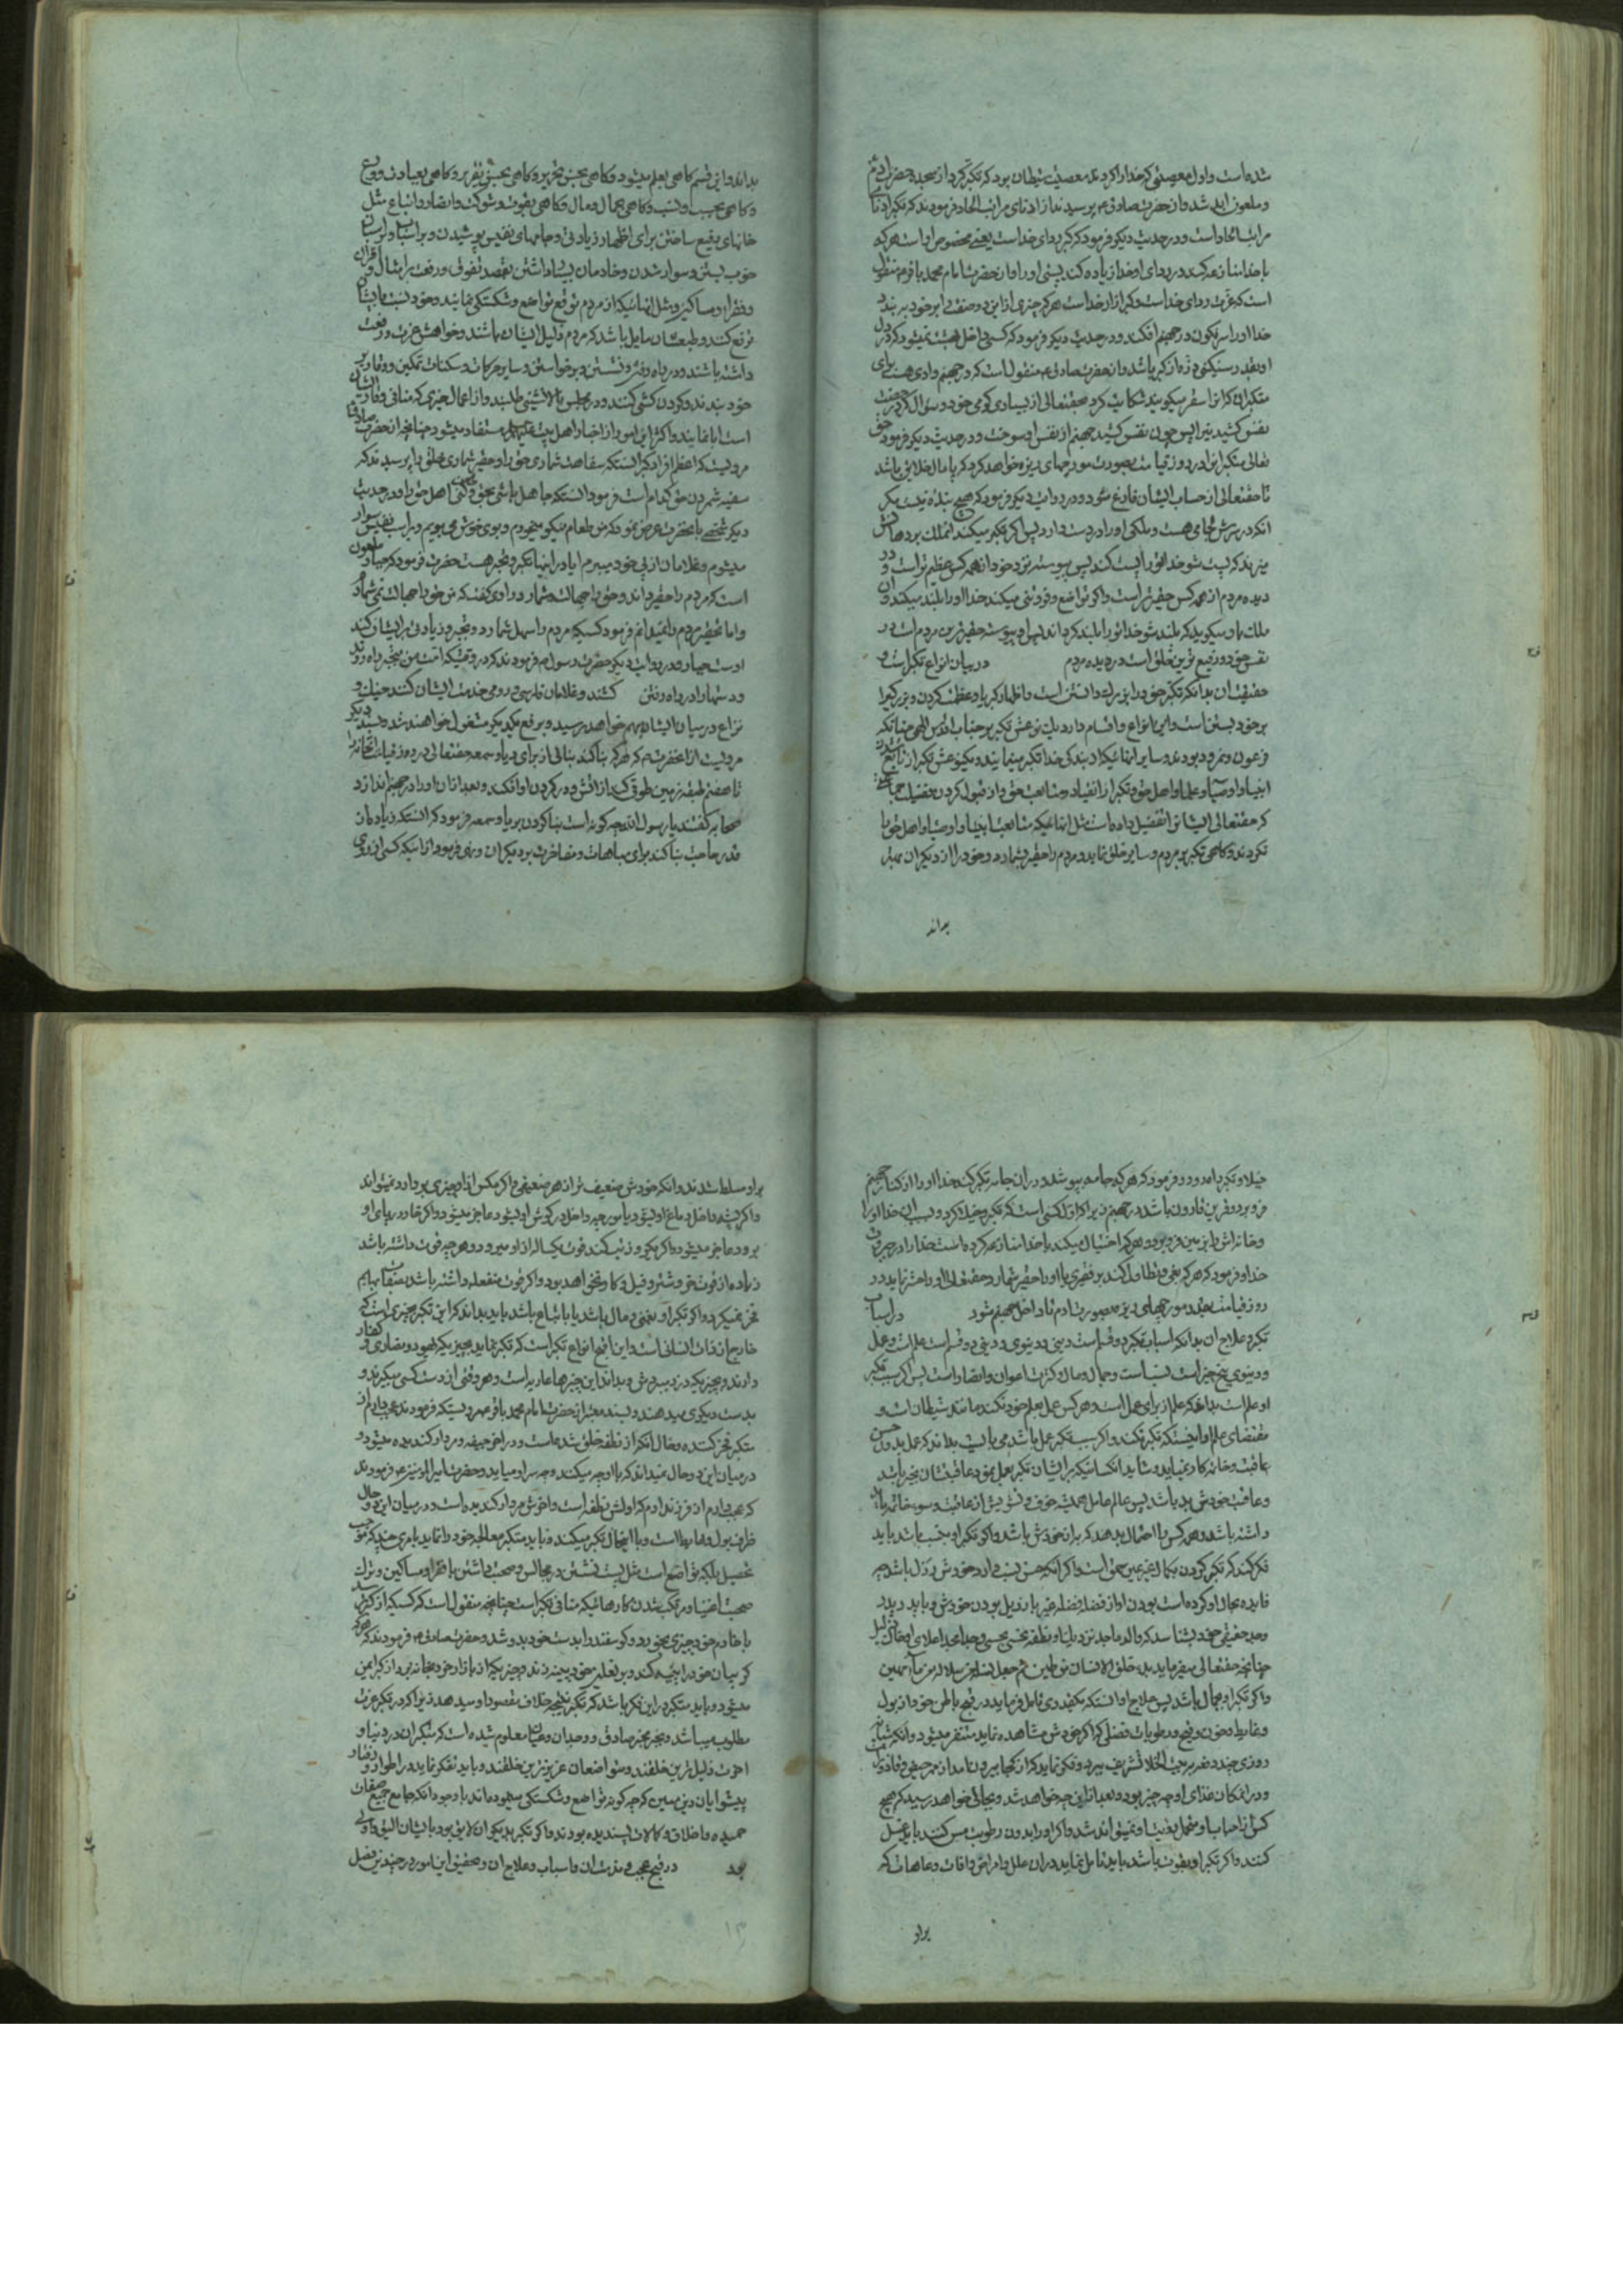 شده است و اول معصیتی که خدا را کردند معصیت شیطان بود که تکبر کرد از سجده حضرت آدم
و ملعون ابد شد و از حضرت صادق ع پرسیدند از ادنای مراتب الحاد فرمودند که تکبر ادنای
مراتب الحاد است و در حدیث دیگر فرمود که کبر ردای خداست یعنی مخصوص او است هر که
با خدا منازعه کند در ردای او خدا زیاده کند پستی او را و از حضرت امام محمد باقر ع منقول
است که عزت ردای خداست و کبر ازار خداست هر که چیزی از این دو صفت را بر خود به بندد
خدا او را سرنگون در جهنم افکند و در حدیث دیگر فرمود که کسی داخل بهشت نمیشود که در دل
او بقدر سنگینی ذره از کبر باشد و از حضرت صادق ع منقول است که در جهنم وادی هست برای
متکبران که انرا سقر میگویند شکایت کرد بحقتعالی از بسیاری گرمی خود و سؤال کرد که رخصت
نفس کشیدنی پس چون نفس کشید جهنم از نفس او سوخت و در حدیث دیگر فرمود حق
تعالی متکبران را در روز قیامت بصورت مورچهای ریزه خواهد کرد که پامال خلایق باشند
تا حقتعالی از حساب ایشان فارغ شود و در روایت دیگر فرمود که هیچ بنده نیست مگر
انکه در سرش لجامی هست و ملکی او را در دست دارد پس اگر تکبر میکند ان ملک بر دهانش
میزند که پست شو خدا تو را پست کند پس پیوسته نزد خود از همه کس عظیم تر است و در
دیده مردم از همه کس حقیرتر است و اگر تواضع و فروتنی میکند خدا او را بلند میکند و ان
ملک باو میگوید که بلند شو خدا تو را بلند کرداند پس او پیوسته حقیرترین مردم است در
نفس خود و رفیع ترین خلق است در دیده مردم در بیان انواع تکبر است و
حقیقت ان بدانکه تکبر خود را بزرک دانستن است و اظهار کبریا و عظمت کردن و بزرگی را
بر خود بستن است و این انواع و اقسام دارد یک نوعش تکبر بر جناب اقدس الهی چنانکه
فرعون و نمرود بودند و سایر انهائیکه از بندگی خدا تکبر مینمایند و یکنوعش تکبر از تابع شدن
انبیا و اوصیا و علما و اهل حق و تکبر از انقیاد و متابعت حق و از قبول کردن تفضیل جماعتی
که حقتعالی ایشان را تفضیل داده است مثل انهائیکه متابعت انبیا و اوصیا و اهل حق را
نکردند و گاهی تکبر بر مردم و سایر خلق نماید و مردم را حقیر شمارد و خود را از دیگران بهتر
بداند
بداند و این قسم گاهی بعلم میشود و گاهی بحسن تحریر و گاهی بحسن تقریر و گاهی بعبادت و ورع
و گاهی بحسب و نسب و گاهی بجمال و مال و گاهی بقوت و شوکت و انصار و اتباع مثل
خانهای رفیع ساختن برای اظهار زیادتی و جامهای نفیس پوشیدن و بر اسبان و استران
خوب نشستن و سوار شدن و خادمان بسیار داشتن بقصد تفوق و رفعت بر امثال و اقران
و فقراء و مساکین و مثل انهائیکه از مردم توقع تواضع و شکستگی نمایند و خود نسبت بایشان
ترفع کنند و طبعشان مایل باشد که مردم ذلیل ایشان باشند و خواهش عزت و رفعت
داشته باشند و در راه رفتن و نشستن و برخواستن و سایر حرکات و سکنات تمکین و وقار بر
خود بندند و گردن کشی کنند و در مجلس بالانشینی طلبند و از اعمال خیری که منافی وقار ایشان
است ابا نمایند و اکثر این امور از اخبار اهل بیت مستفاد میشود چنانچه از حضرت صادق ع
مرویست که اعظم افراد کبر انستکه سفاهت شماری حق را و حقیر شماری خلق را پرسیدند که
سفیه شمردن حق کدام است فرمود انستکه جاهل باشی بحق و طعن کنی اهل حق را و در حدیث
دیگر شخصی بانحضرت عرض نمود که من طعام نیکو میخورم و بوی خوش میبویم و بر اسب نفیس سوار
میشوم و غلامان از پی خود میبرم ایا در اینها تکبر و تجبر هست حضرت فرمود که جبار ملعون
است که مردم را حقیر داند و حق را جهالت شمارد راوی گفت که من حق را جهالت نمی شمارم
و اما تحقیر مردم را نمیدانم فرمود کسیکه مردم را سهل شمارد و تجبر و زیادتی بر ایشان کند
اوست جبار و در روایت دیگر حضرت رسول ص فرمودند که در وقتیکه امت من بتجبر راه روند
و دستها را در راه رفتن کشند و غلامان فارسی و رومی خدمت ایشان کنند جنک و
نزاع در میان ایشان بهم خواهد رسید و برفع یکدیگر مشغول خواهند شد و بسند دیگر
مرویست از انحضرت ص که هر که بنا کند بنائی از برای ریا و سمعه حقتعالی در روز قیامت انخانه را
تا هفتم طبقه زمین طوقی کند از اتش و در گردن او افکند و بعد از ان او را در جهنم اندازد
صحابه گفتند یا رسول الله چگونه است بنا کردن بریا و سمعه فرمود که انستکه زیاد از
قدر حاجت بنا کند برای مباهات و مفاخرت بر دیگران و نهی فرمود از اینکه کسی از روی
خیلاء و تکبر راه رود و فرمود که هر که جامه بپوشد و در ان جامه تکبر کند خدا او را از کنار جهنم
فرو برد و قرین قارون باشد در جهنم زیرا که اول کسی است که تکبر و خیلا کرد و بسبب ان خدا او را
و خانه اش را بزمین فرو برد و هر که اختیال میکند با خدا منازعه کرده است خدا را در جبروت
خدا و فرمود که هر که بغی و تطاول کند بر فقیری یا او را حقیر شمارد حقتعالی او را حشر نماید در
روز قیامت بقدر مورچهای ریز بصورت ادم تا داخل جهنم شود در اسباب
تکبر و علاج ان بدانکه اسباب تکبر دو قسم است دینی و دنیوی و دینی دو قسم است علم است و عمل
و دنیوی پنج چیز است نسب است و جمال و مال و کثرت اعوان و انصار است پس اگر سبب تکبر
او علم است بداند که علم از برای عمل است و هر کس عمل بعلم خود نکند مانند شیطان است و
مقتضای علم او اینستکه تکبر نکند و اگر سبب تکبر عمل باشد می بایست بداند که عمل بدون حسن
عاقبت و خاتمه کار نمیاید و شاید انکسانیکه بر ایشان تکبر بعمل نمود عاقبتشان بخیر باشد
و عاقبت خودش بد باشد پس عالم عامل همیشه خوف و تشویش از عاقبت و سوء خاتمه باید
داشته باشد و هر کس را احتمال بدهد که به از خودش باشد و اگر تکبر او بنسب باشد باید
فکر کند که تکبر کردن بکمال غیر عین حمق است و اگر انکه حسن نسب دارد خودش رذل باشد چه
فایده بحال او کرده است بودن او از فضله فضله غیر با رذیل بودن خودش و باید پدر
وجد حقیقی خود بشناسد که والد ماجد نزدیک او نطفه نجسی و جد امجد اعلای او خاک ذلیل
چنانچه حقتعالی میفرماید بدء خلق الانسان من طین ثم جعل نسله من سلالة من ماء مهین
و اگر تکبر او بجمال باشد پس علاج او انستکه بقدری تامل فرماید در قبح باطن خود از بول
و غایط و خون و قبح و رطوبات فضلی که اگر خودش مشاهده نماید متنفر میشود و انکه شبانه
روزی چند دفعه در بیت الخلا تشریف ببرد و فکر نماید که از کجا بیرون تا مد از ممر حیض و قاذورات
و در انمکان غذای او چه چیز بود و بعد از این چه خواهد شد و بجائی خواهد رسید که هیچ
کس از احباب او متحمل نمیتواند شد و اگر او را بدون رطوبت مس کنند باید غسل
کنند و اگر تکبر او بقوت باشد باید تامل نماید در ان علل و امراض و افات و عاهات که
بر او
بر او مسلط شدند و انکه خودش ضعیف تر از هر ضعیفی و اگر مکس از او چیزی بردارد نمیتواند
و اگر پشه داخل دماغ او شود یا مورچه داخل در گوش او شود عاجز میشود و اگر خار در پای او
برود عاجز میشود و اگر یکروز تب کند قوت یکسال از او میرود و هر چه قوت داشته باشد
زیاده از قوت خر و شتر و فیل و گاو نخواهد بود و اگر قوت منفعله داشته باشد بصفات بهایم
فخر نمیکرد و اگر تکبر او بغنی و مال باشد یا باتباع باشد باید بداند که این تکبر بچیزی است که
خارج از ذات انسانی است و این اقبح انواع تکبر است که تکبر نماید بچیزیکه یهود و نصاری و کفار
دارند و بچیزیکه دزد میبردش و بداند این چیزها عاریه است و هر وقتی از دست کسی میگیرند و
بدست دیگری میدهند و بسند معتبر از حضرت امام محمد باقر ع مرویستکه فرمودند عجب دارم از
متکبر فخر کننده و حال انکه از نطفه خلق شده است و در اخر جیفه و مردار گندیده میشود و
در میان این دو حال نمیداند که با او چه میکنند و چه بسر او میاید و حضرت امیر المومنین ع فرمودند
که عجب دارم از فرزند ادم که اولش نطفه است و اخرش مردار گندیده است و در میان این دو حال
ظرف بول و غایط است و با اینحال تکبر میکند و باید متکبر معالجه خود را نماید بامری چند که موجب
تحصیل ملکه تواضع است مثل پست نشستن در مجالس و صحبت داشتن با فقرا و مساکین و ترک
صحبت اغنیا و مرتکب شدن کارهائیکه منافی تکبر است چنانچه منقول است که کسیکه از کبر ترسد
با خادم خود چیزی بخورد و گوسفند را بدست خود بدوشد و حضرت صادق ع فرمودند که هر که
گریبان خود را پینه کند و بر نعلین خود پینه زند و چیزیکه از بازار خرد بخانه برد از کبر ایمن
میشود و باید متکبر در این فکر باشد که تکبر نتیجه خلاف مقصود او میدهد زیرا که در تکبر عزت
مطلوب میباشد و بتجربه مخبر صادق و وجدان و عیان معلوم شده است که متکبران در دنیا و
اخرت ذلیل ترین خلقند و متواضعان عزیزترین خلقند و باید تفکر نماید در اطوار و رفتار
پیشوایان دین مبین که چه گونه تواضع و شکستگی مینموده اند با وجود انکه جامع جمیع صفات
حمیده و اخلاق و کمالات پسندیده بودند و اگر تکبر بدیگران لایق بود بایشان الیق و اولی
بود در قبح عجب و مذمت ان و اسباب و علاج ان و تحقیق این امور در چندین فصل